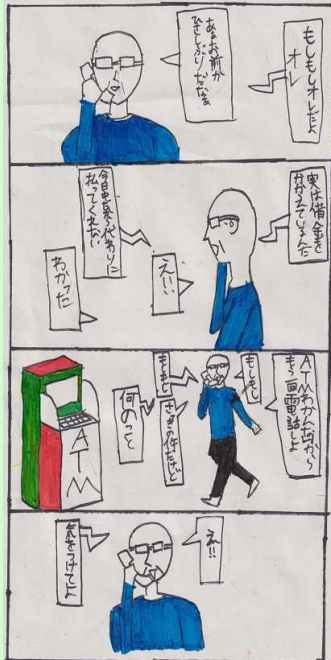 もしもしオレだよ
オレ
ああお前か
ひさしぶりだなぁ
実は借金を
かかえているんだ
えいい
代わりに
払ってくれない
わかった
ATMわかんないから
もう一回電話しよ
もしもし
もしもし
さっきの件だけど
何のこと
ATM
え!!
気をつけてよ